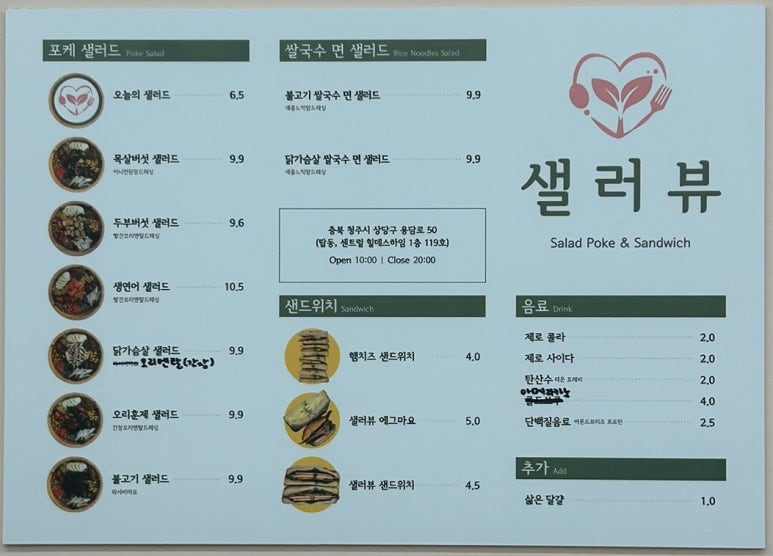 포케 샐러드 Poke Salad
오늘의 샐러드 6.5
목살버섯 샐러드 9.9
어니언된장드레싱
두부버섯 샐러드 9.6
발간오리엔탈드레싱
생연어 샐러드 10.5
발간오리엔탈드레싱
닭가슴살 샐러드 9.9
와사비마요 오리엔탈(간장)
오리훈제 샐러드 9.9
간장오리엔탈드레싱
불고기 샐러드 9.9
와사비마요
쌀국수 면 샐러드 Rice Noodles Salad
불고기 쌀국수 면 샐러드 9.9
새콤느억맘드레싱
닭가슴살 쌀국수 면 샐러드 9.9
새콤느억맘드레싱
충북 청주시 상당구 용담로 50
(탑동, 센트럴 힐데스하임 1층 119호)
Open 10:00 | Close 20:00
샌드위치 Sandwich
햄치즈 샌드위치 4.0
샐러뷰 에그마요 5.0
샐러뷰 샌드위치 4.5
샐러뷰
Salad Poke & Sandwich
음료 Drink
제로 콜라 2.0
제로 사이다 2.0
탄산수 레몬 트레비 2.0
아메리카노
콜드브루 4.0
단백질음료 아몬드브리즈 프로틴 2.5
추가 Add
삶은 달걀 1.0